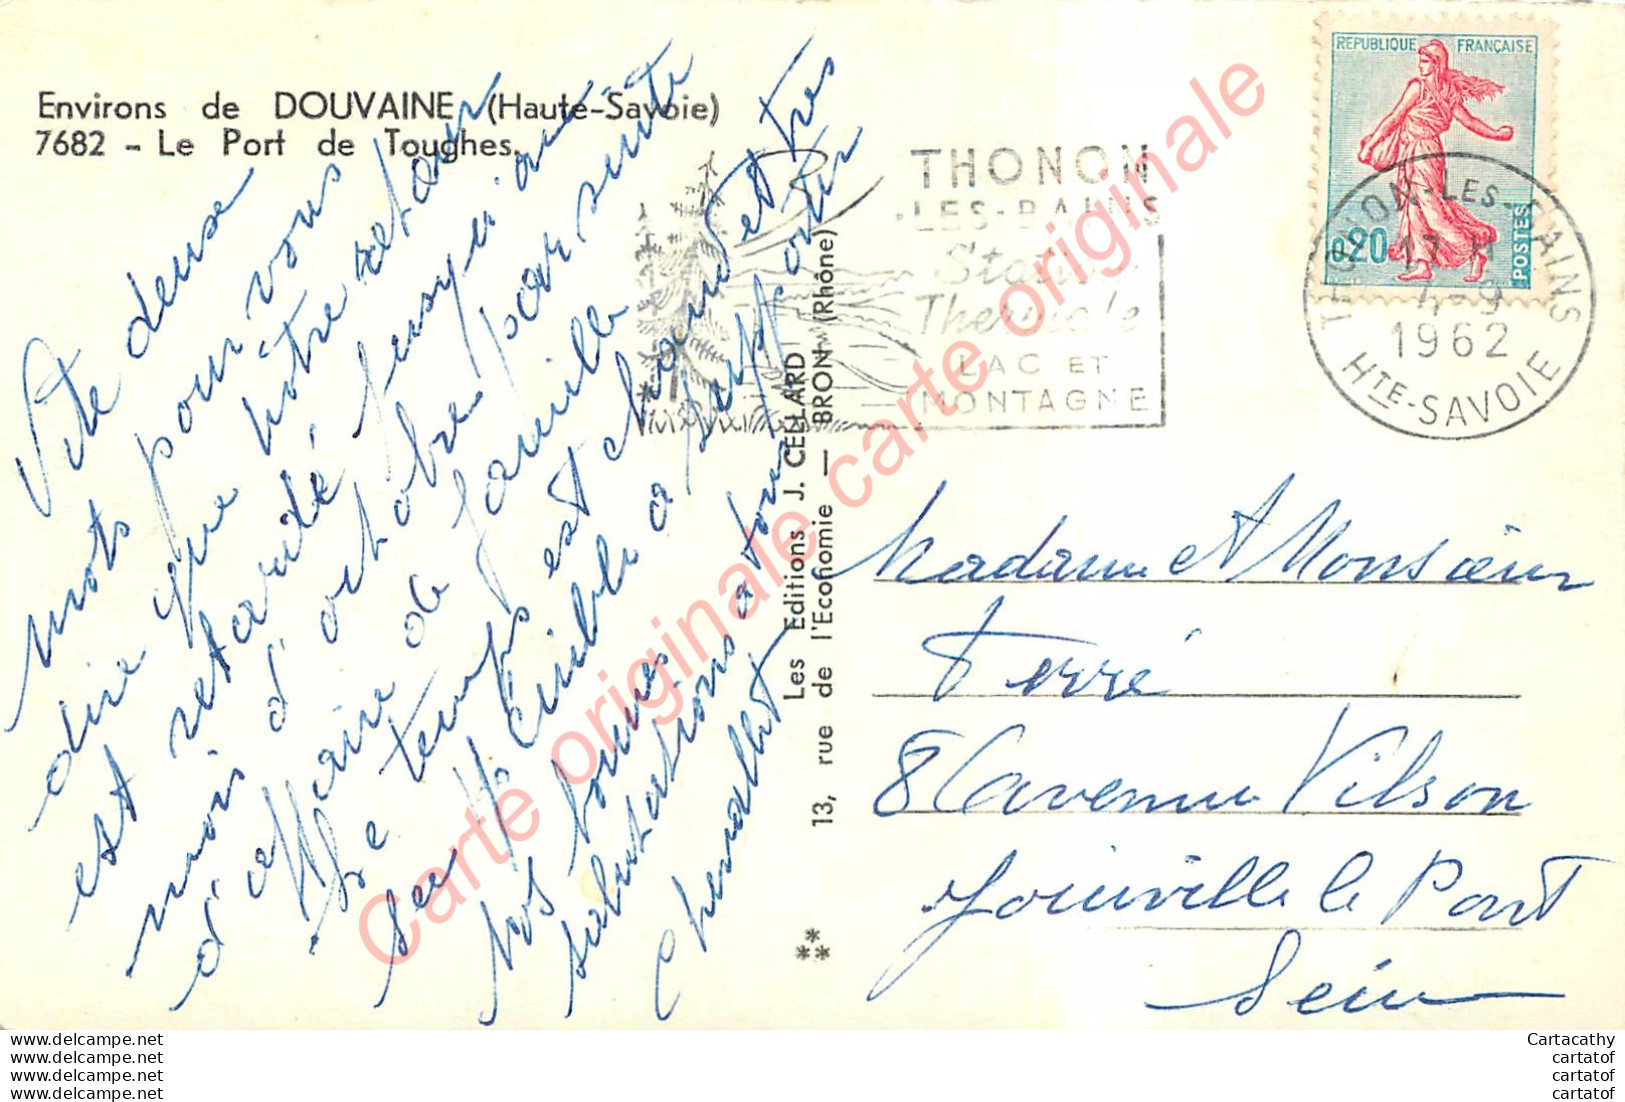 Environs de DOUVAINE (Haute-Savoie)
7682 - Le Port de Toughes.
Vite deuse
mots pour vous
dire que nôtre retour
est retardé jusqu'i au
mois d'octobre par suite
d'affaire de famille
Le temps est chaud et très
sec
Nos bonnes
salutations a tous
Les Editions J. CELLARD
13, rue de l'Economie — BRON (Rhône)
THONON
-LES-BAINS
Station
Thermale
LAC ET
MONTAGNE
REPUBLIQUE FRANÇAISE
0,20
POSTES
THONON-LES-BAINS
17 H
4-9
1962
HTE-SAVOIE
Madame et Monsieur
Ferré
8 avenue Vilson
Joinville le Pont
Seine
Carte originale carte originale carte originale
www.delcampe.net
www.delcampe.net
www.delcampe.net
www.delcampe.net
Cartacathy
cartatof
cartatof
cartatof